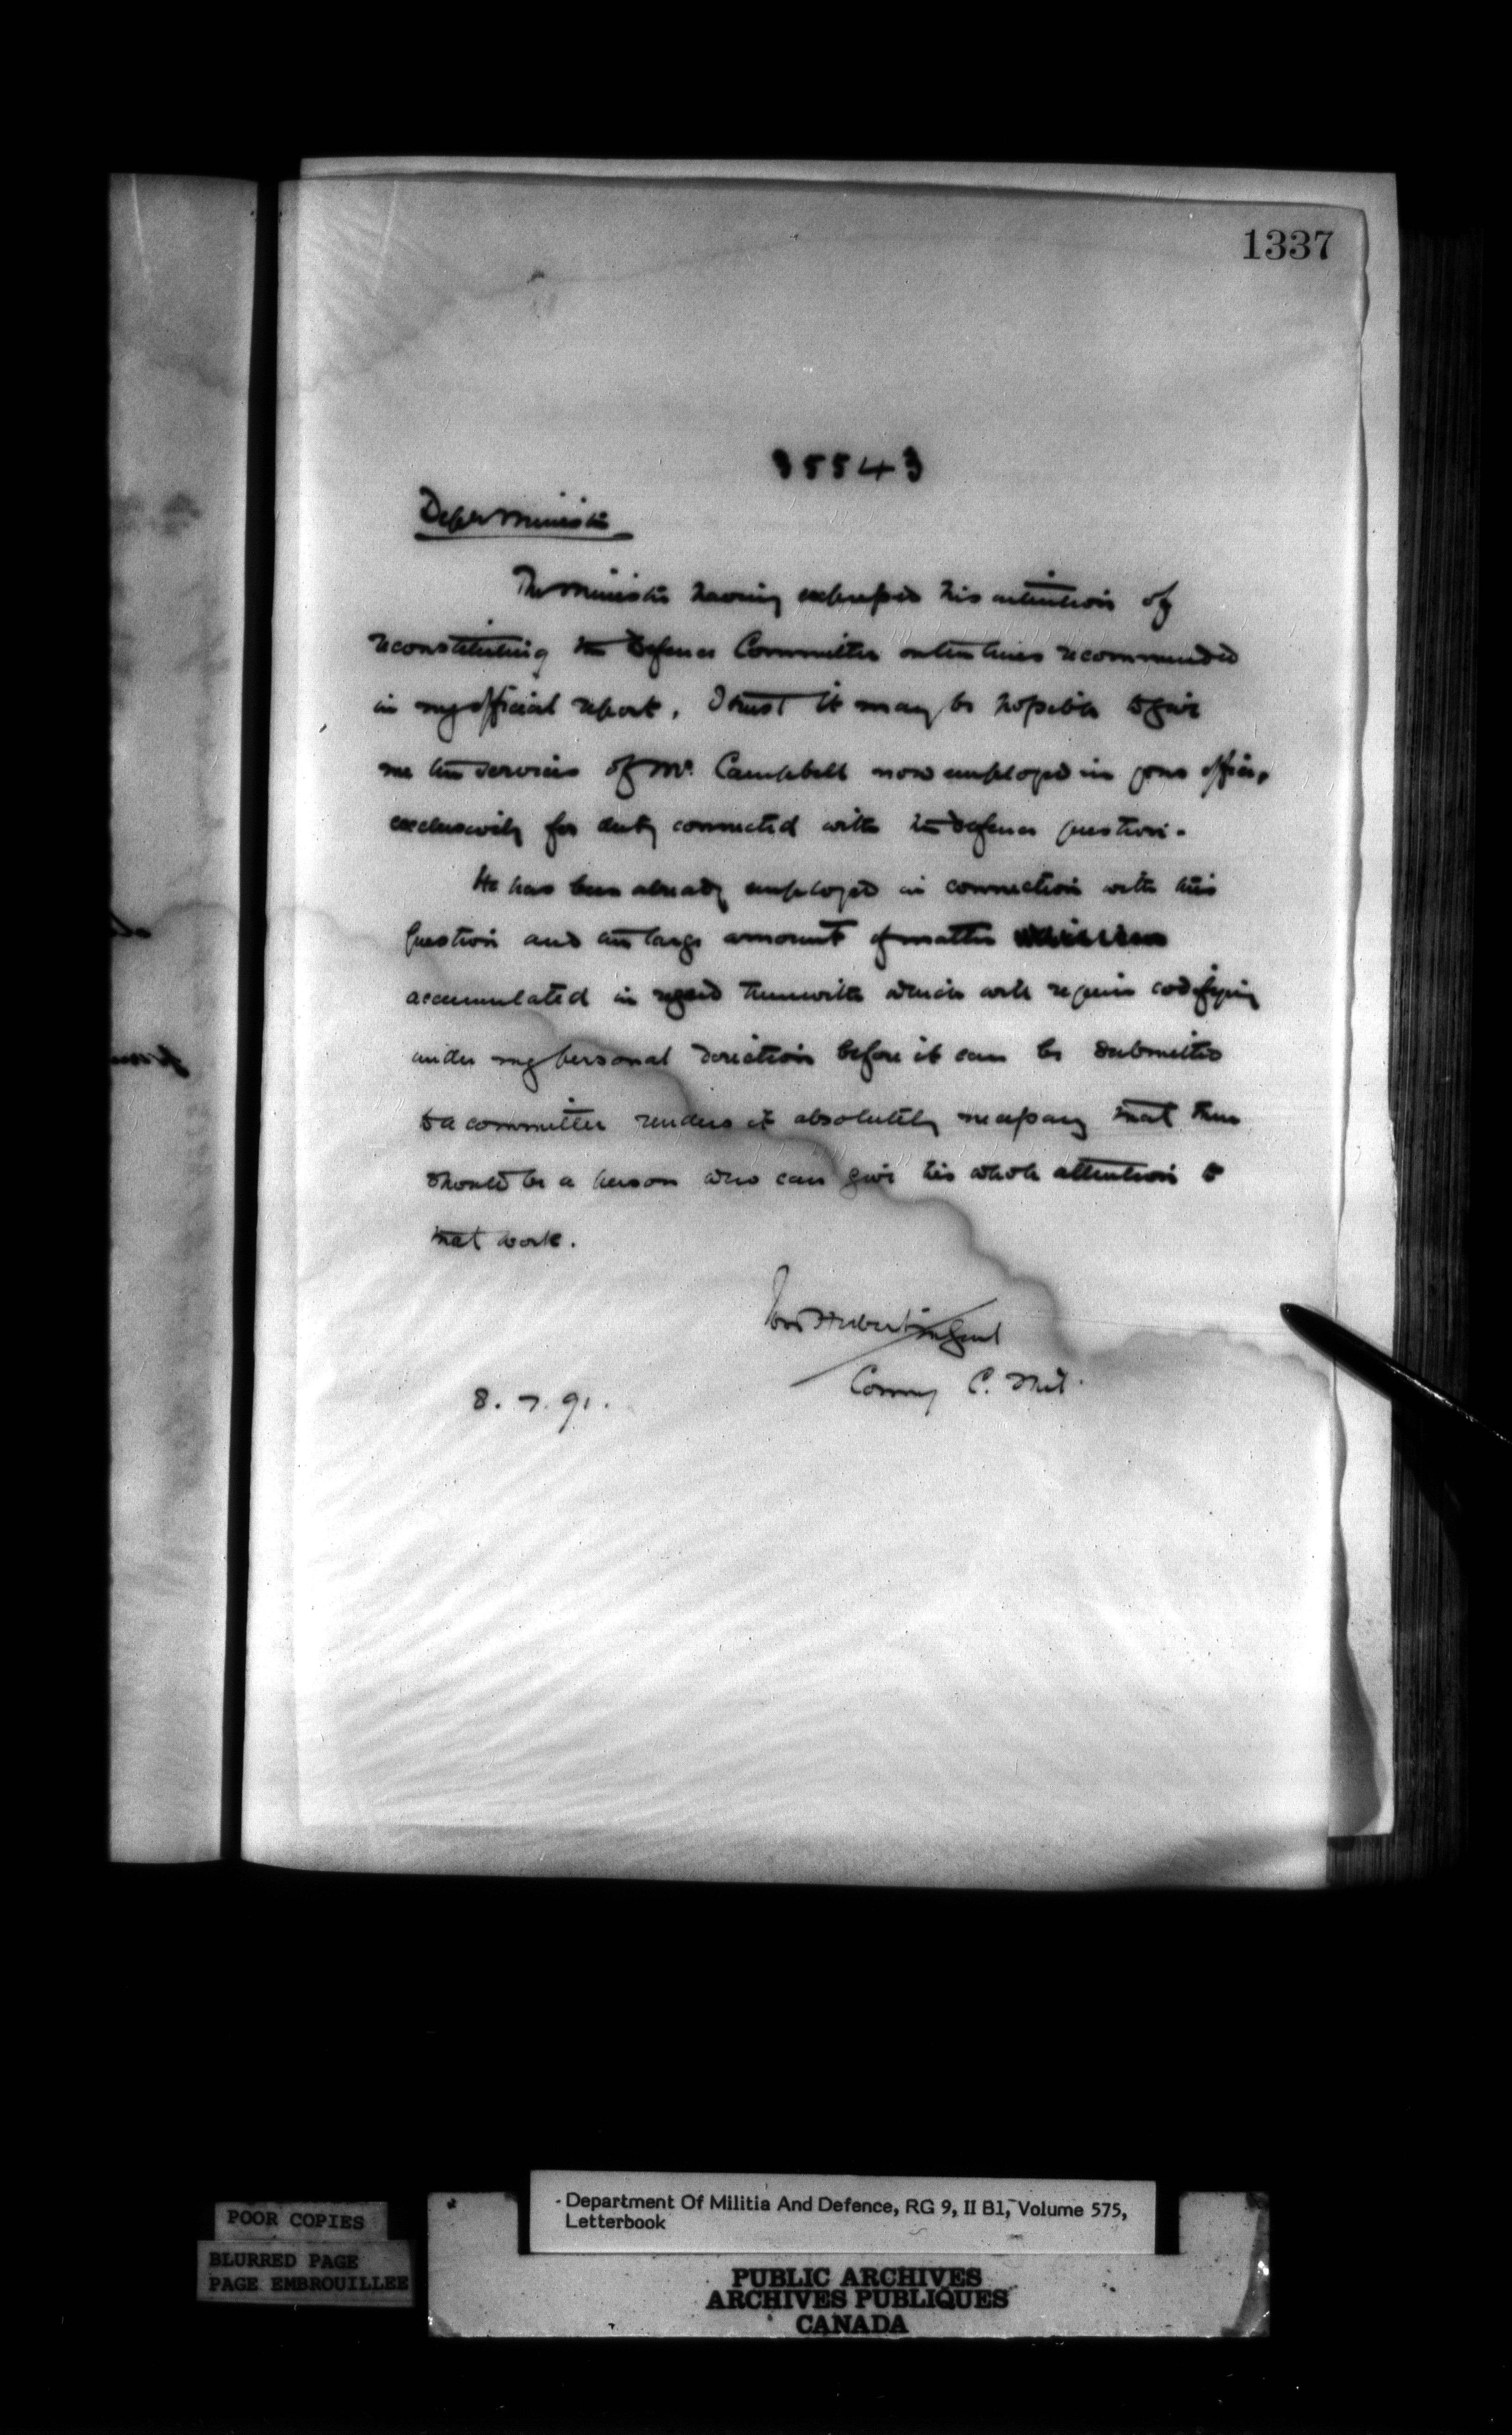 1337
35543
Depy Minister
The Minister having expressed his intention of
reconstituting the Defence Committee on the lines recommended
in my official report, I trust it may be possible to give
me the services of Mr. Campbell now employed in your office,
exclusively for duty connected with the Defence question.
He has been already employed in connection with this
question and the large amount of matter
accumulated in regard therewith which will require codifying
under my personal direction before it can be submitted
to a committee renders it absolutely necessary that there
should be a person who can give his whole attention to
that work.
Ivor Herbert M Genl
Commg C. Mil.
8.7.91.
Department Of Militia And Defence, RG 9, II B1, Volume 575,
Letterbook
POOR COPIES
BLURRED PAGE
PAGE EMBROUILLEE
PUBLIC ARCHIVES
ARCHIVES PUBLIQUES
CANADA